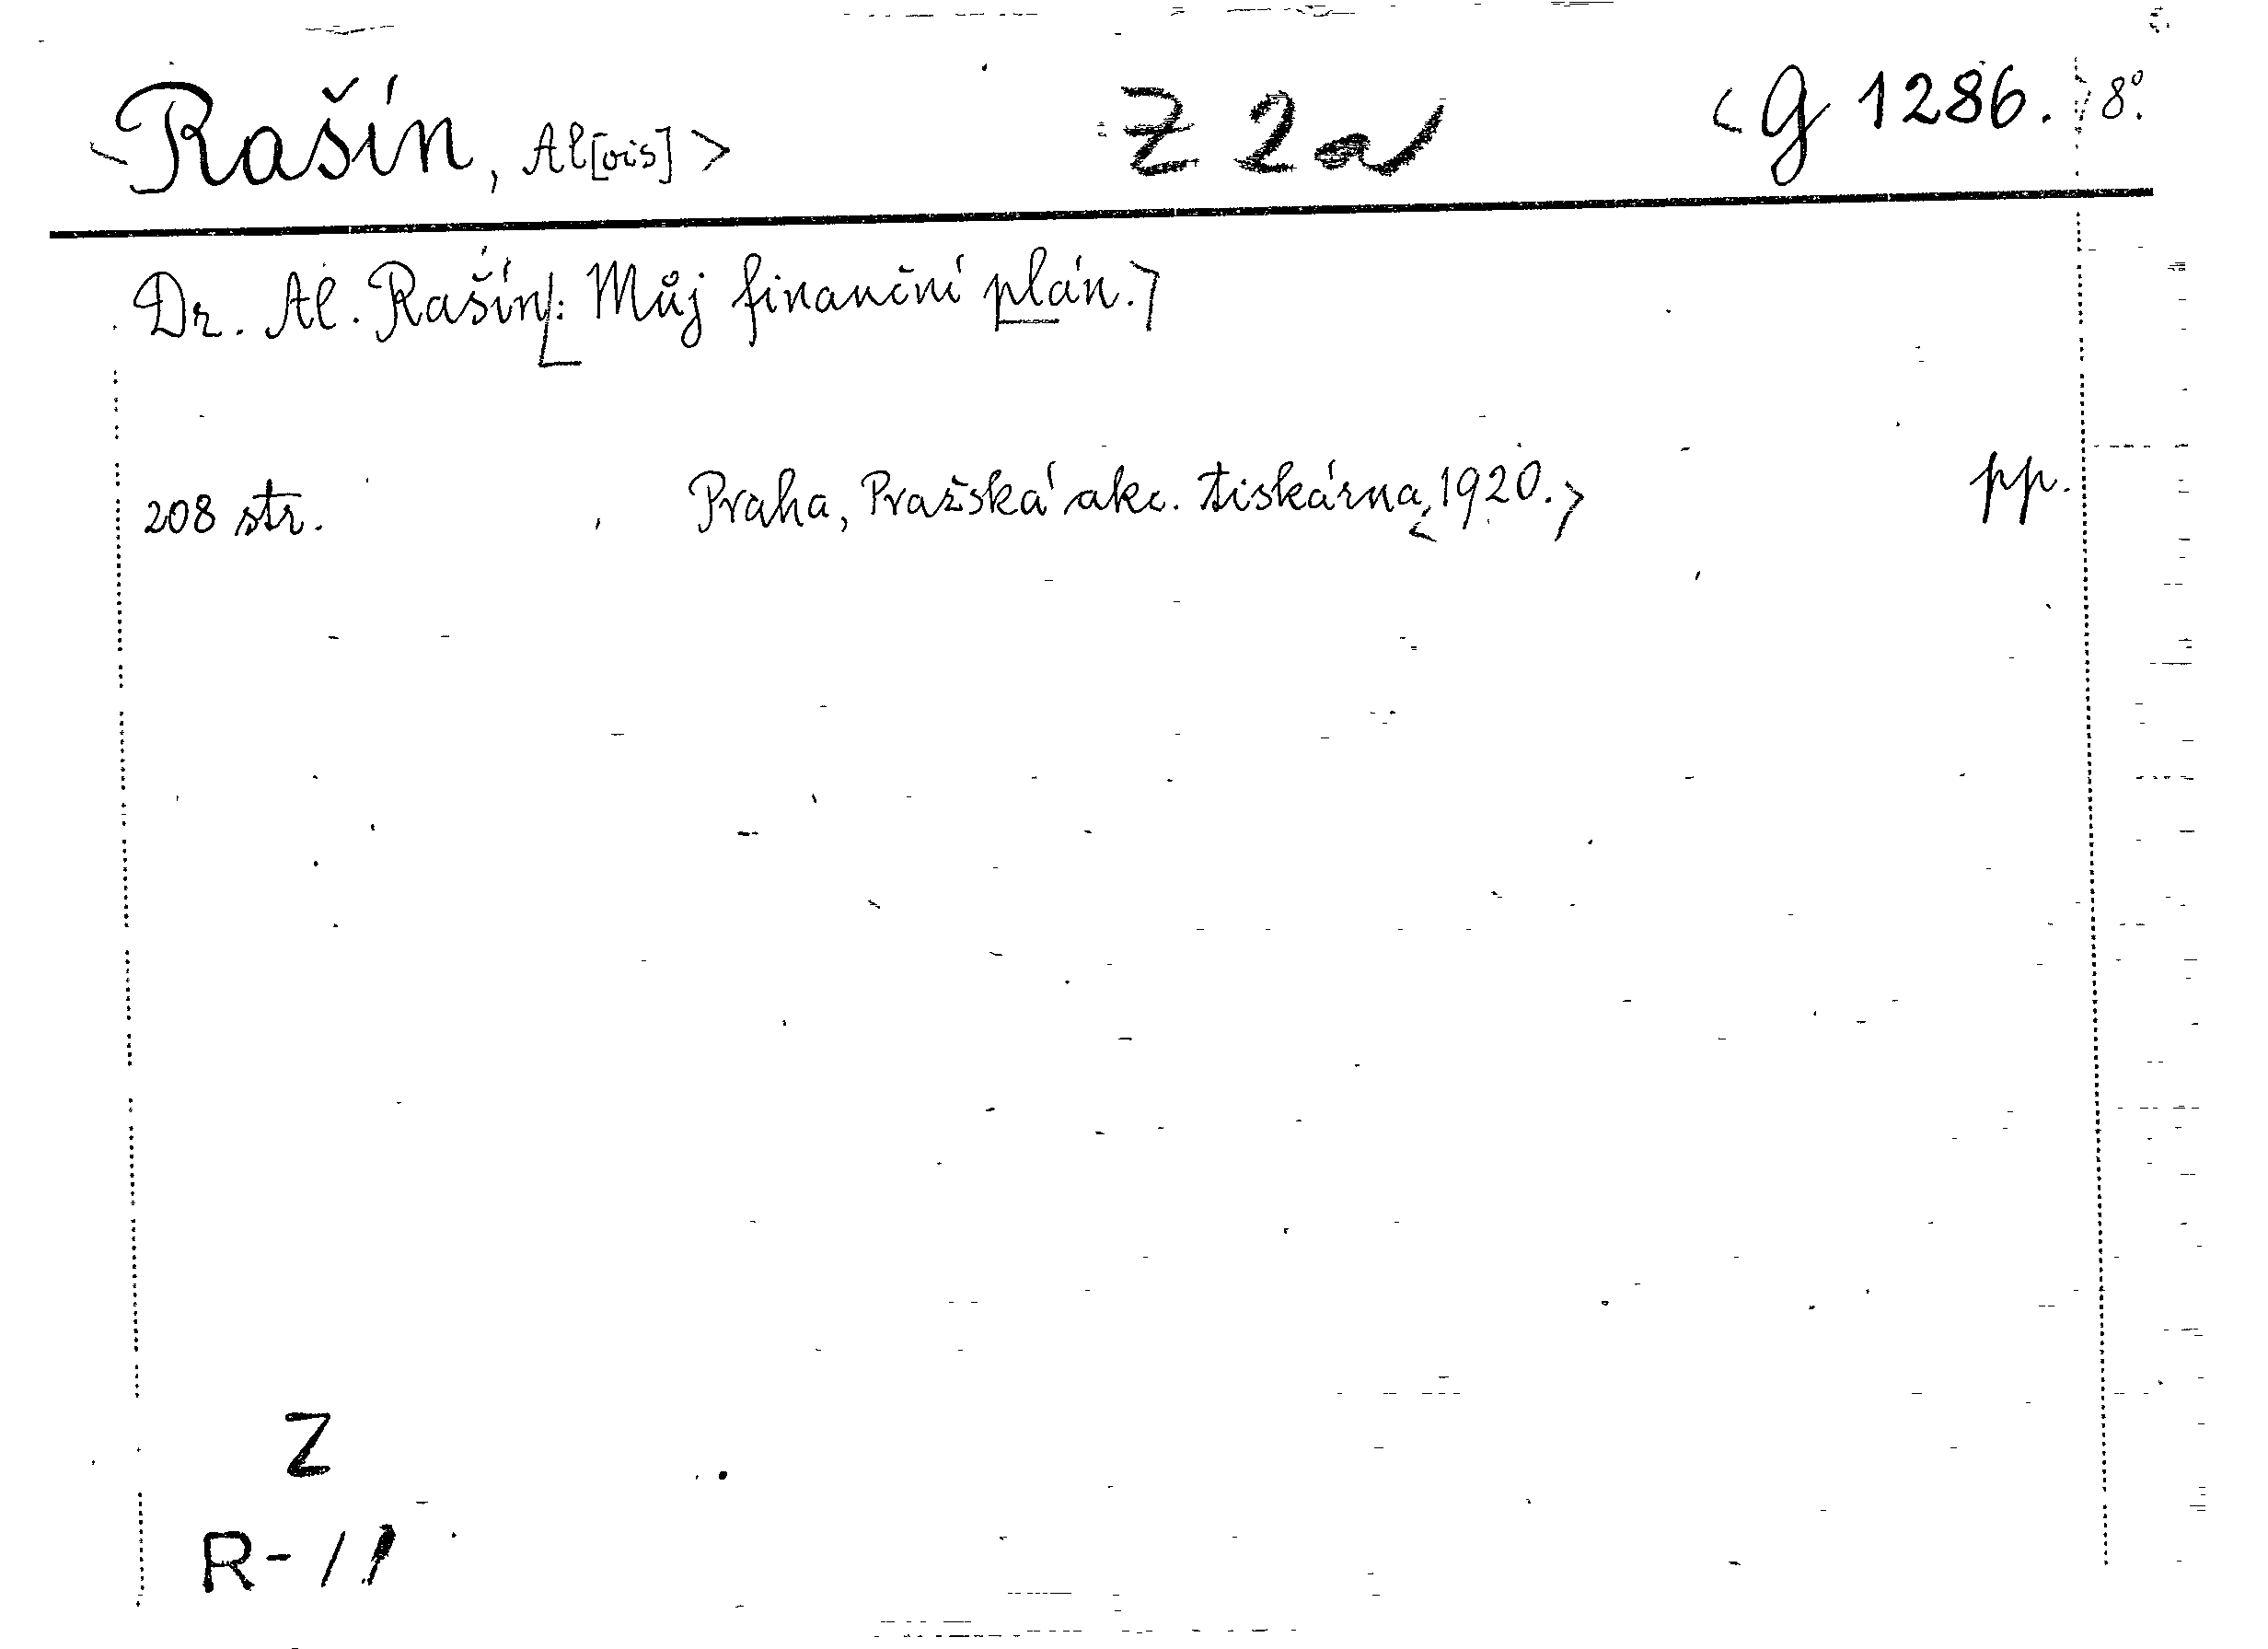 <Rašín, Al[ois]> Z 2a <G 1286.> 8°.
Dr. Al. Rašín[: Můj finanční plán.]
208 str. Praha, Pražská akc. tiskárna, <1920.> pp.
Z
R-11